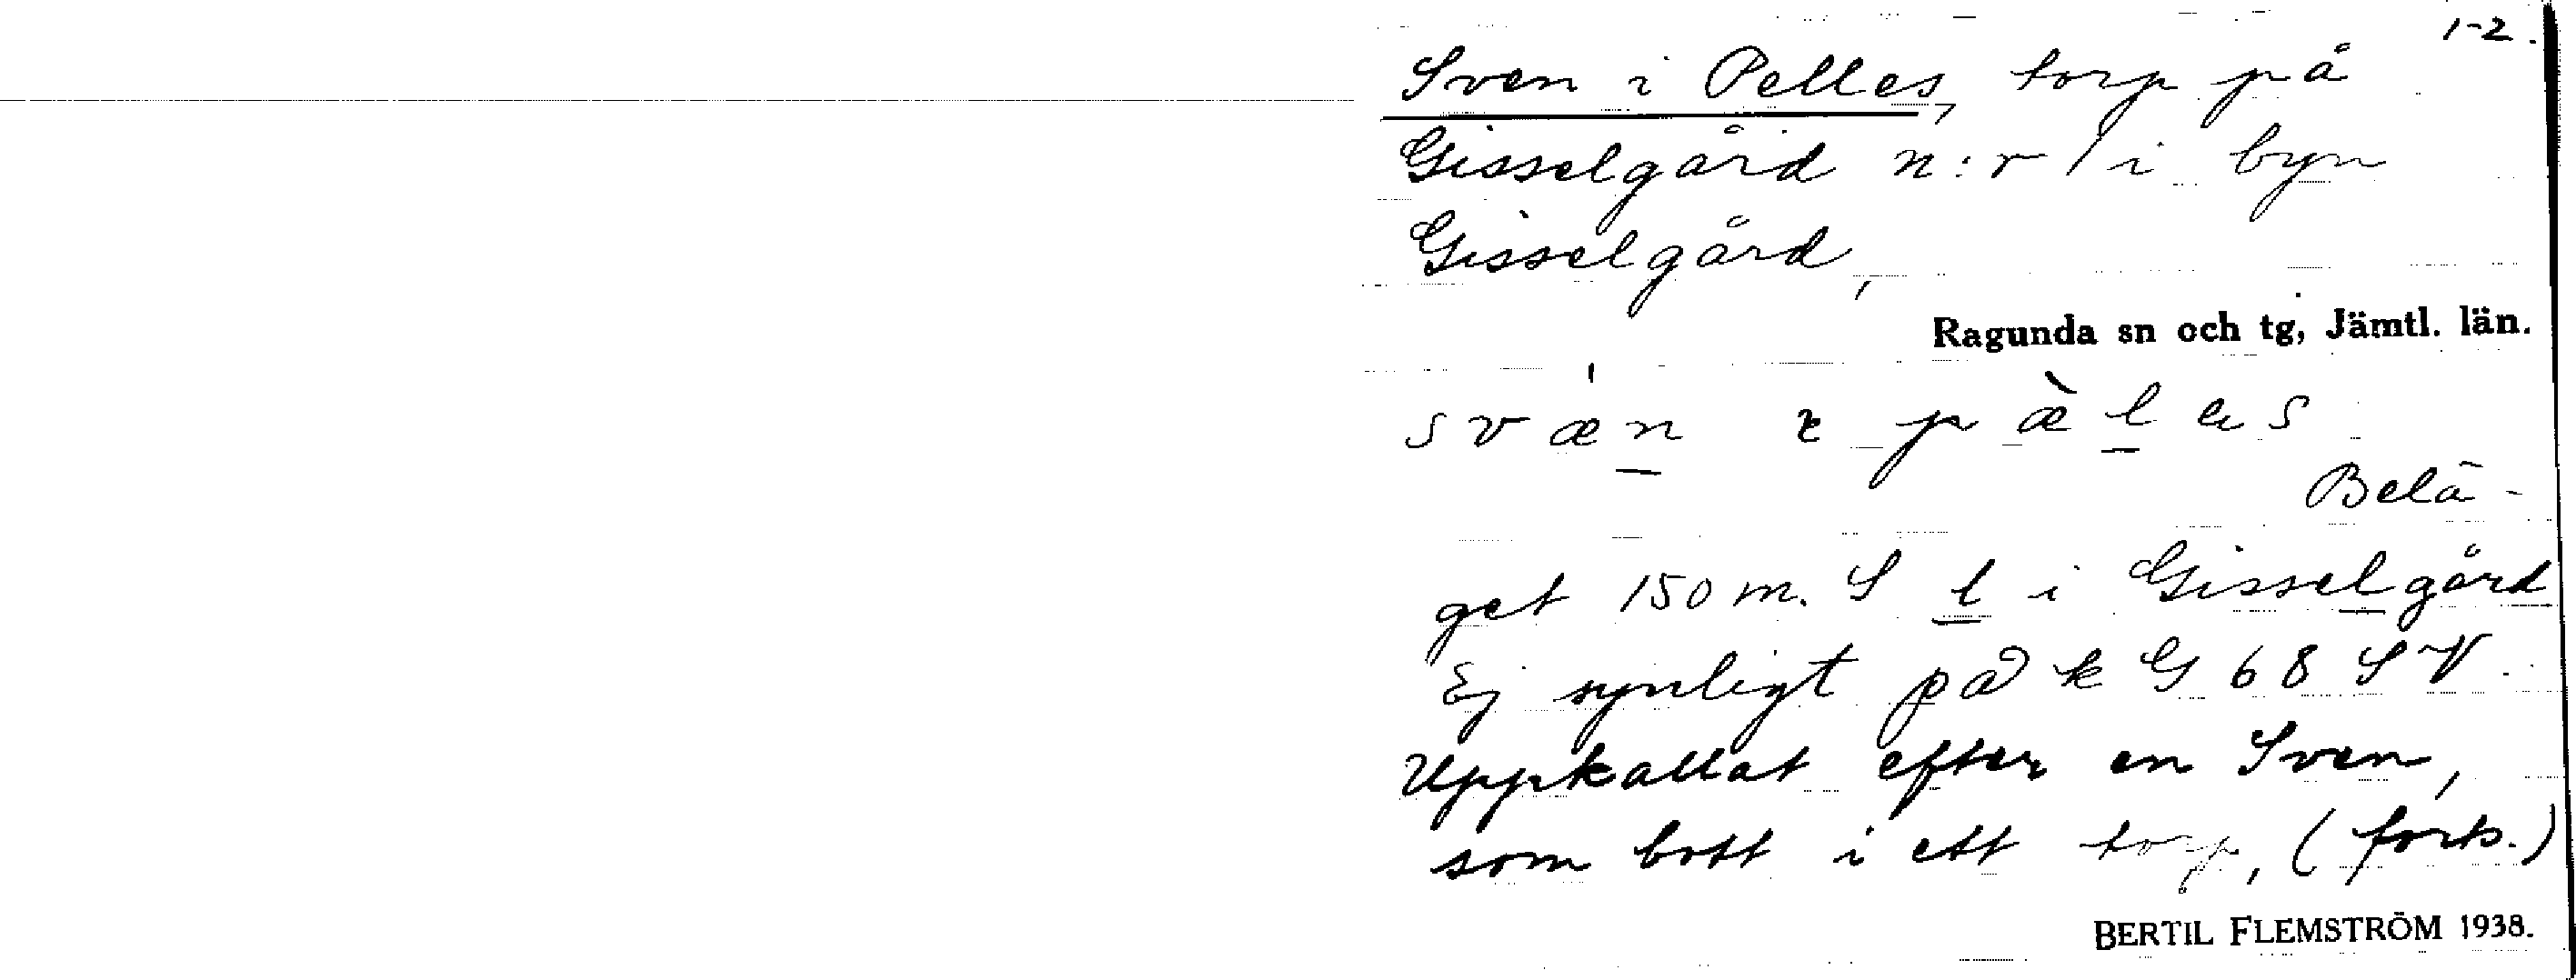 1-2.
Sven i Pelles, torp på
Gisselgård n:r 1 i byn
Gisselgård,
Ragunda sn och tg, Jämtl. län.
svæ̀n ɩ pæ̀les
Belä-
get 150 m. S l i Gisselgård
Ej synligt på k G 68 SV.
Uppkallat efter en Sven,
som bott i ett torp, (forts.)
BERTIL FLEMSTRÖM 1938.